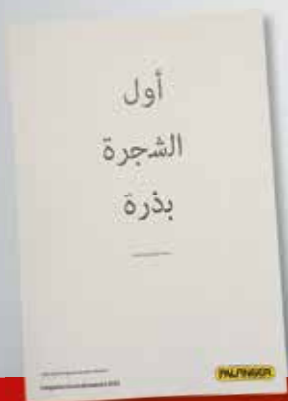 أول
الشجرة
بذرة
PALFINGER